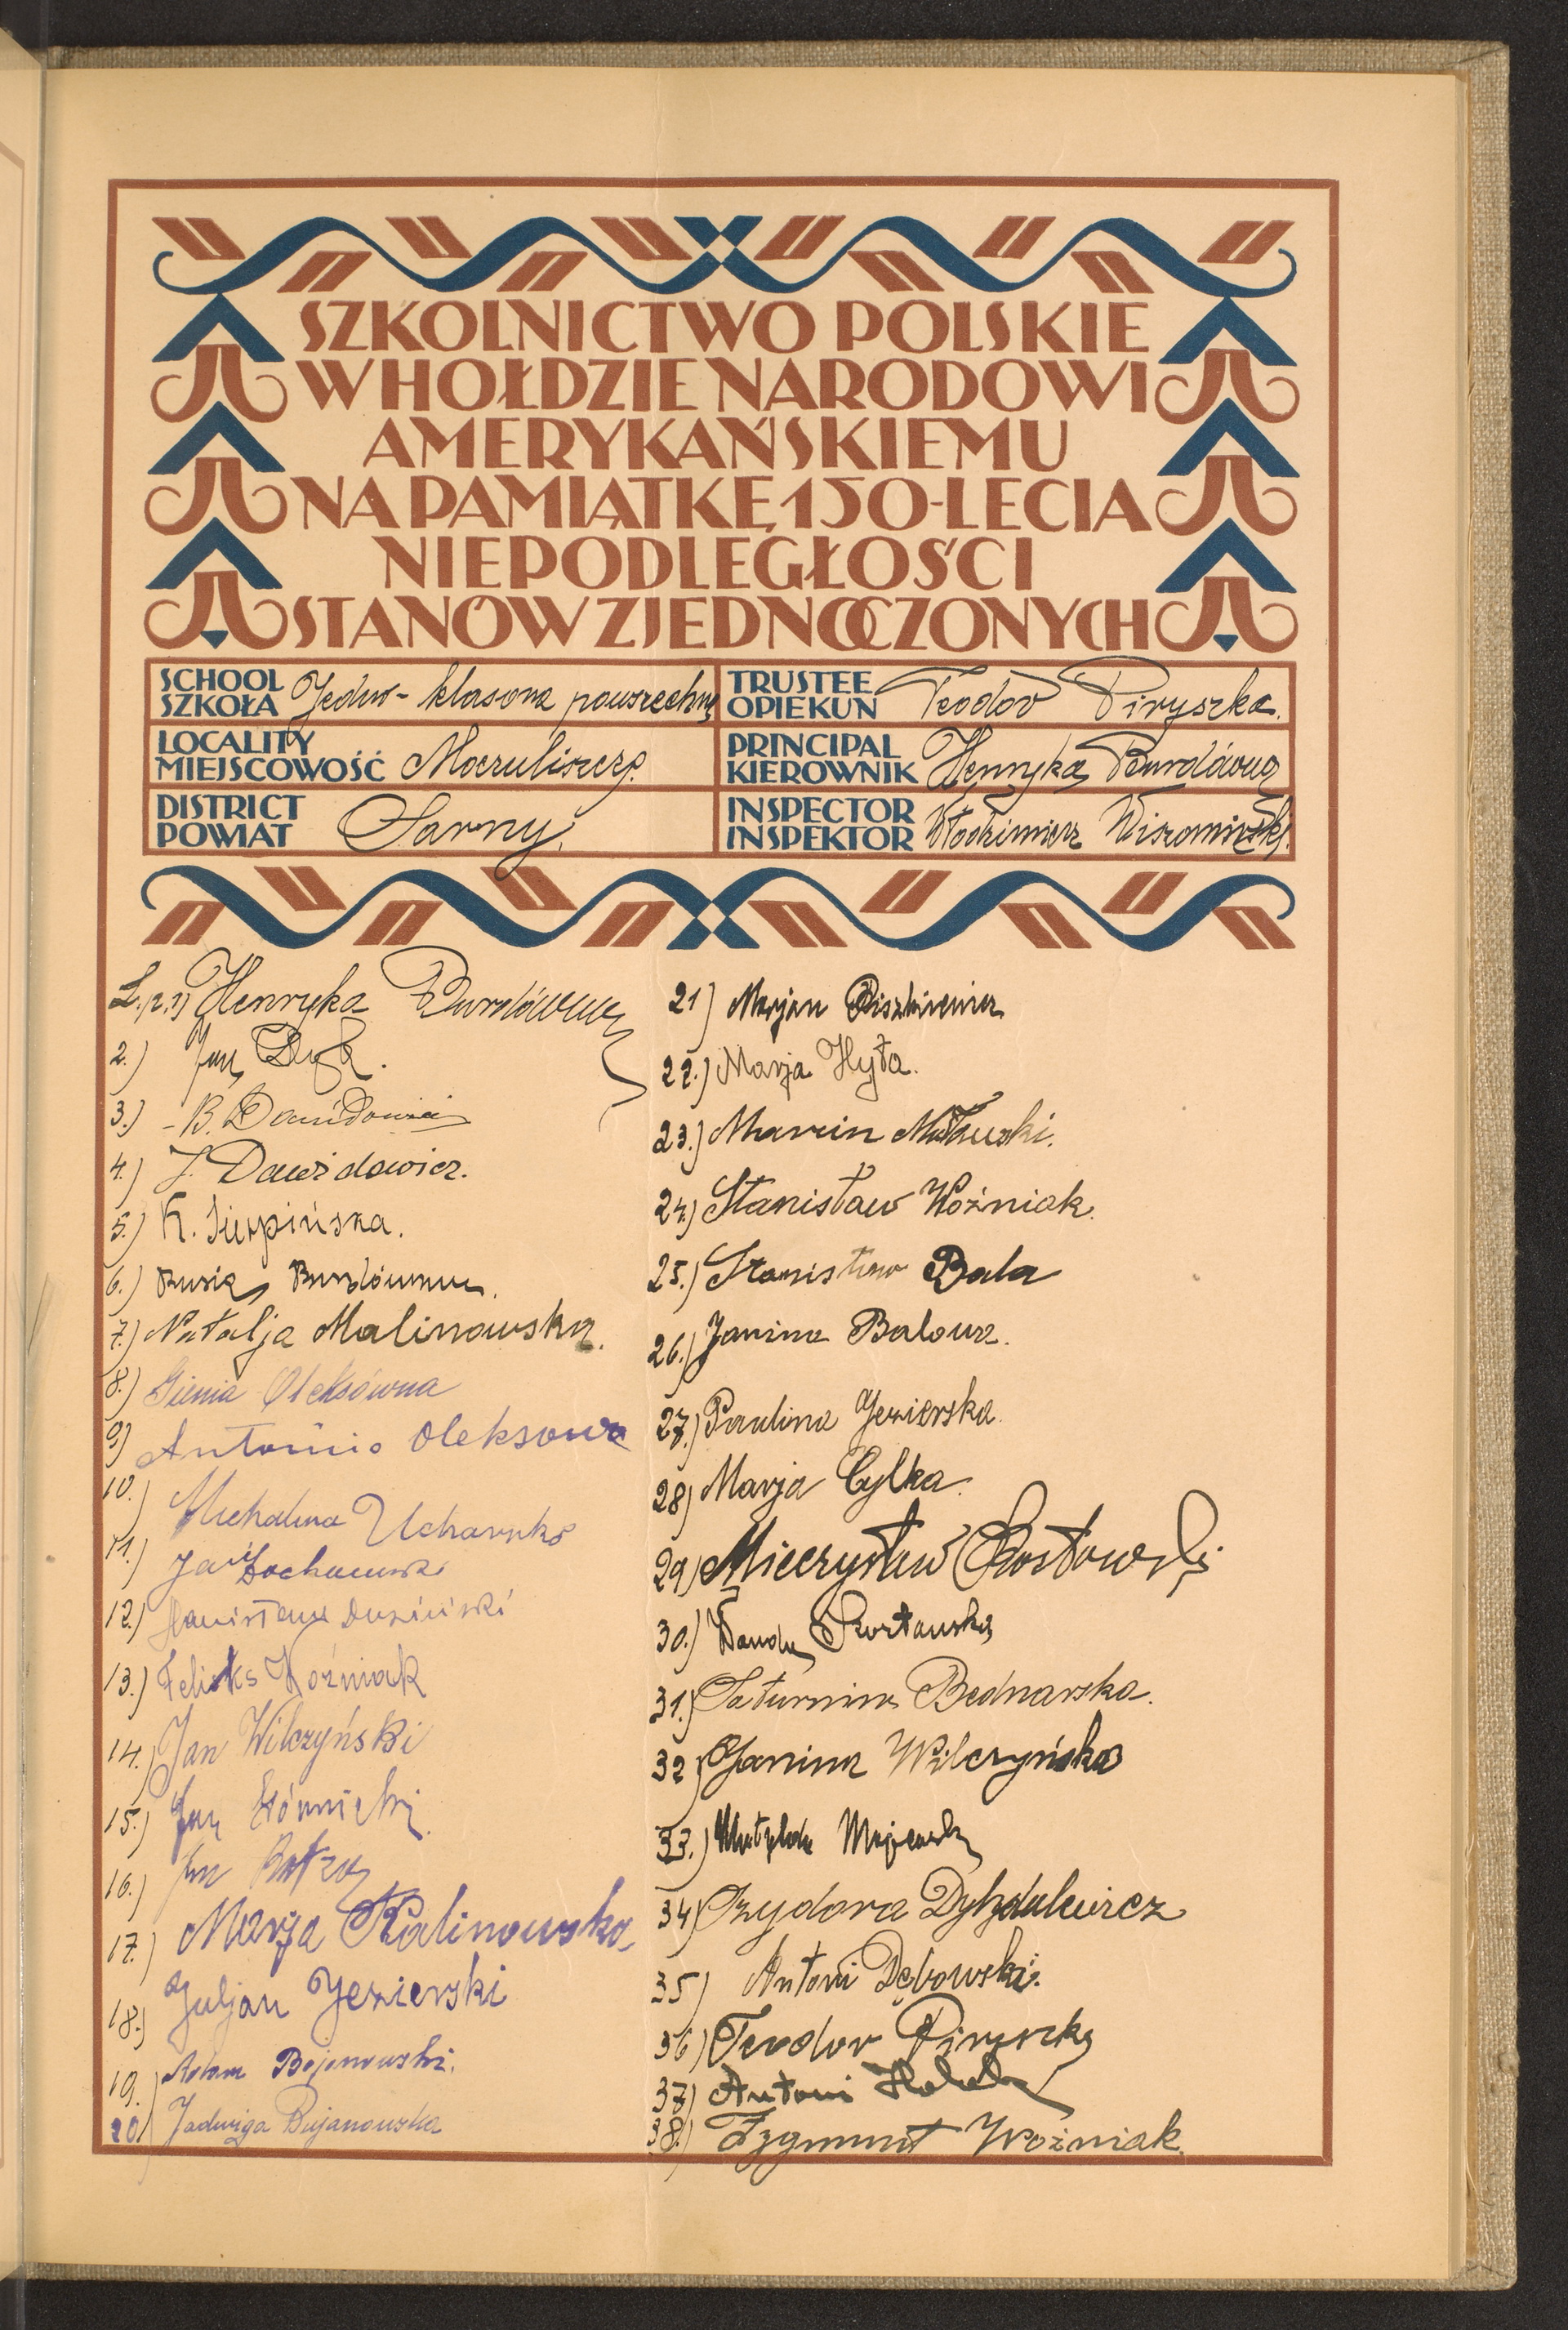 SZKOLNICTWO POLSKIE
W HOŁDZIE NARODOWI
AMERYKAŃSKIEMU
NA PAMIĄTKĘ 150-LECIA
NIEPODLEGŁOŚCI
STANÓW ZJEDNOCZONYCH
SCHOOL
SZKOŁA Jedno-klasowa powszechna
TRUSTEE
OPIEKUN Teodor Piryszka.
LOCALITY
MIEJSCOWOŚĆ Moczuliszcze.
PRINCIPAL
KIEROWNIK Henryka Burdówna
DISTRICT
POWIAT Sarny.
INSPECTOR
INSPEKTOR Włodzimierz
L.p. 1) Henryka Burdówna
2.) Jan
3.) B. Dawidowicz
4.) J. Dawidowicz.
5.) K. Sierpińska.
6.) Burdówna.
7.) Natalja Malinowska.
8.) Gienia Oleksówna
9) Antonina Oleksowa
10.) Michalina Ucharska
11.) Jan
12.) Stanisław
13.) Feliks Woźniak
14.) Jan Wilczyński
15.) Jan
16.) Jan
17.) Marja Kalinowska
18.) Juljan Jezierski
19.) Adam Bojanowski.
20) Jadwiga Bujanowska
21) Marjan
22.) Marja Hyła.
23.) Marcin
24.) Stanisław Woźniak.
25.) Stanisław Bala
26.) Janina Balowa.
27.) Paulina Jezierska.
28) Marja Cylka.
29) Mieczysław
30.) Wanda
31.) Saturnina Bednarska.
32) Janina Wilczyńska
33.) Matylda Majewska
34) Izydora
35) Antoni Dębowski.
36) Teodor Piryszka
37) Antoni
38.) Zygmunt Woźniak.